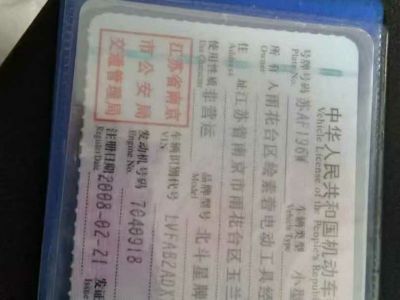 中华人民共和国机动车
Vehicle License of the People's Repu
号牌号码 苏AF196W 车辆类型 小型
Plate No. Vehicle Type
所有人 雨花台区
电动工具经
Owner
住址 江苏省南京市雨花台区玉兰
Address
使用性质 非营运 品牌型号 北斗星牌
Use Character Model
江苏省南京
市公安局
交通管理局
车辆识别代号 LVFAB2ADX
VIN
发动机号码 7040918
Engine No.
注册日期 2008-02-21 发证
Register Date Issue